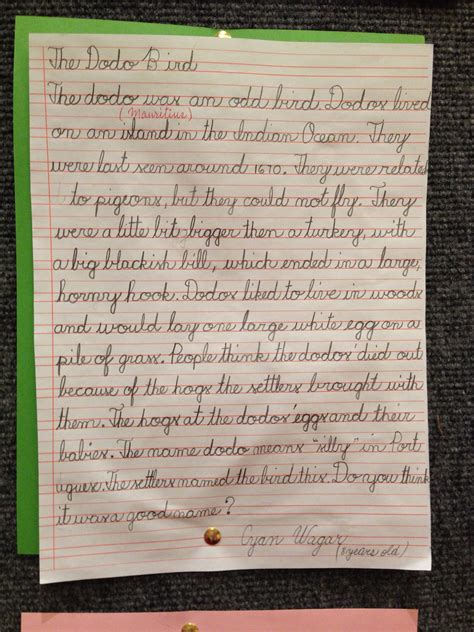 The Dodo Bird
The dodo was an odd bird. Dodos lived
(Mauritius)
on an island in the Indian Ocean. They
were last seen around 1670. They were related
to pigeons, but they could not fly. They
were a litte bit bigger then a turkery, with
a big blackish bill, which ended in a large,
hornry hook. Dodos liked to live in woods
and would lay one large white egg on a
pile of grass. People think the dodos' died out
because of the hogs the settlers brought with
them. The hogs at the dodos' eggs and their
babies. The name dodo means "silly" in Port
uguez. The settlers named the bird this. Do you think
it was a good name?
Cyan Wagar
(8 years old)